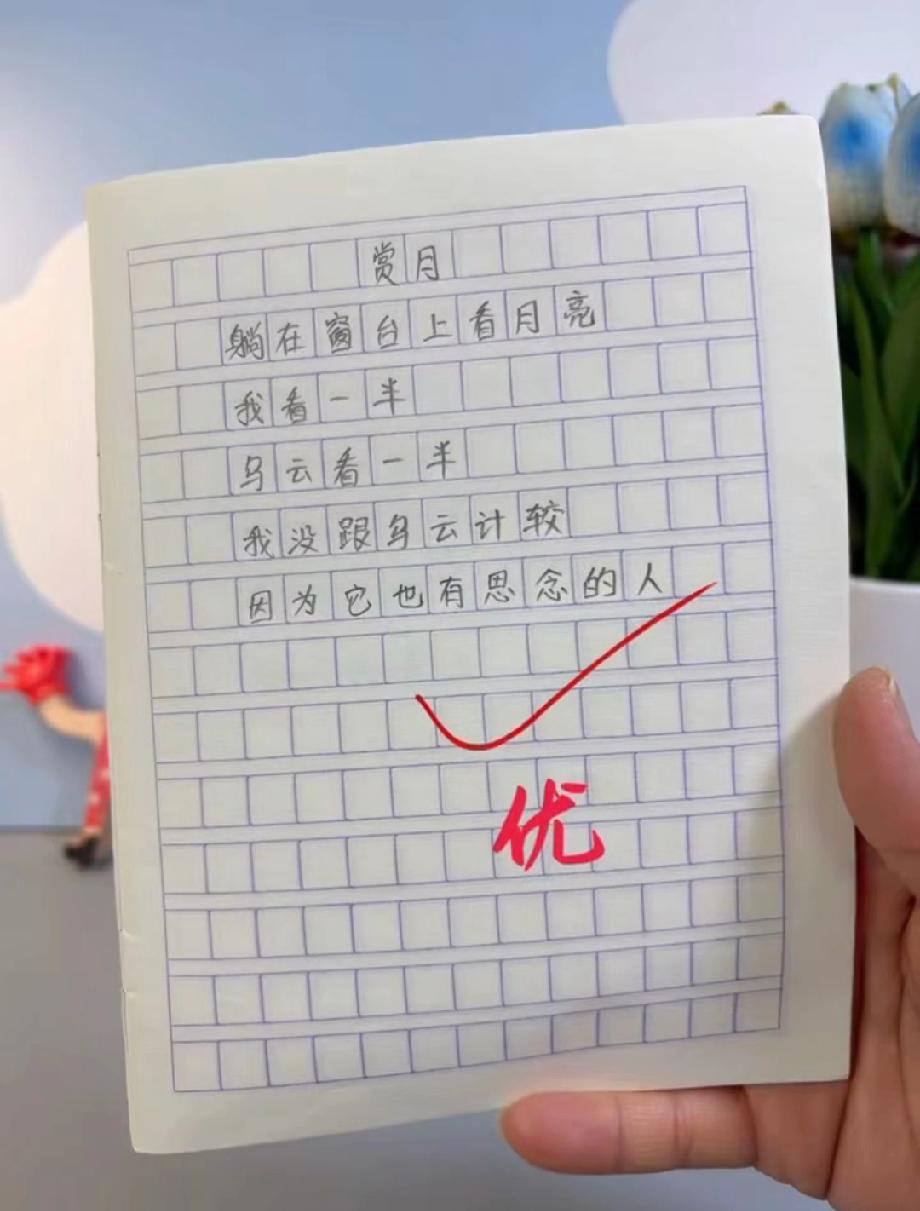 赏月
躺在窗台上看月亮
我看一半
乌云看一半
我没跟乌云计较
因为它也有思念的人
优